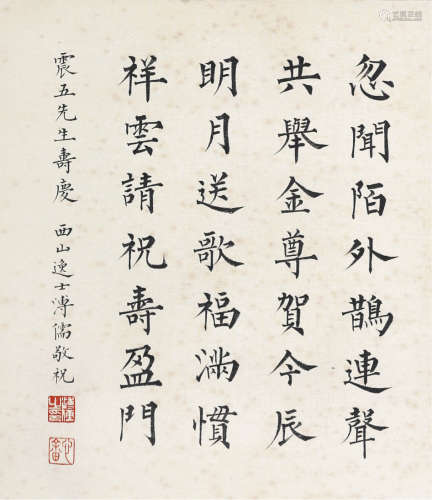 忽聞陌外鵲連聲
共舉金尊賀今辰
明月送歌福滿慣
祥雲請祝壽盈門
震五先生壽慶 西山逸士溥儒敬祝